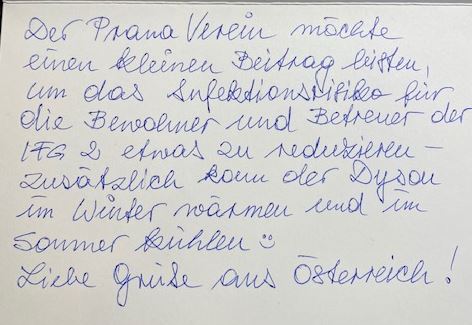 Der Prana Verein möchte
einen kleinen Beitrag leisten,
um das Infektionsrisiko für
die Bewohner und Betreuer der
IFG 2 etwas zu reduzieren –
zusätzlich kann der Dyson
im Winter wärmen und im
Sommer kühlen ☺
Liebe Grüße aus Österreich!